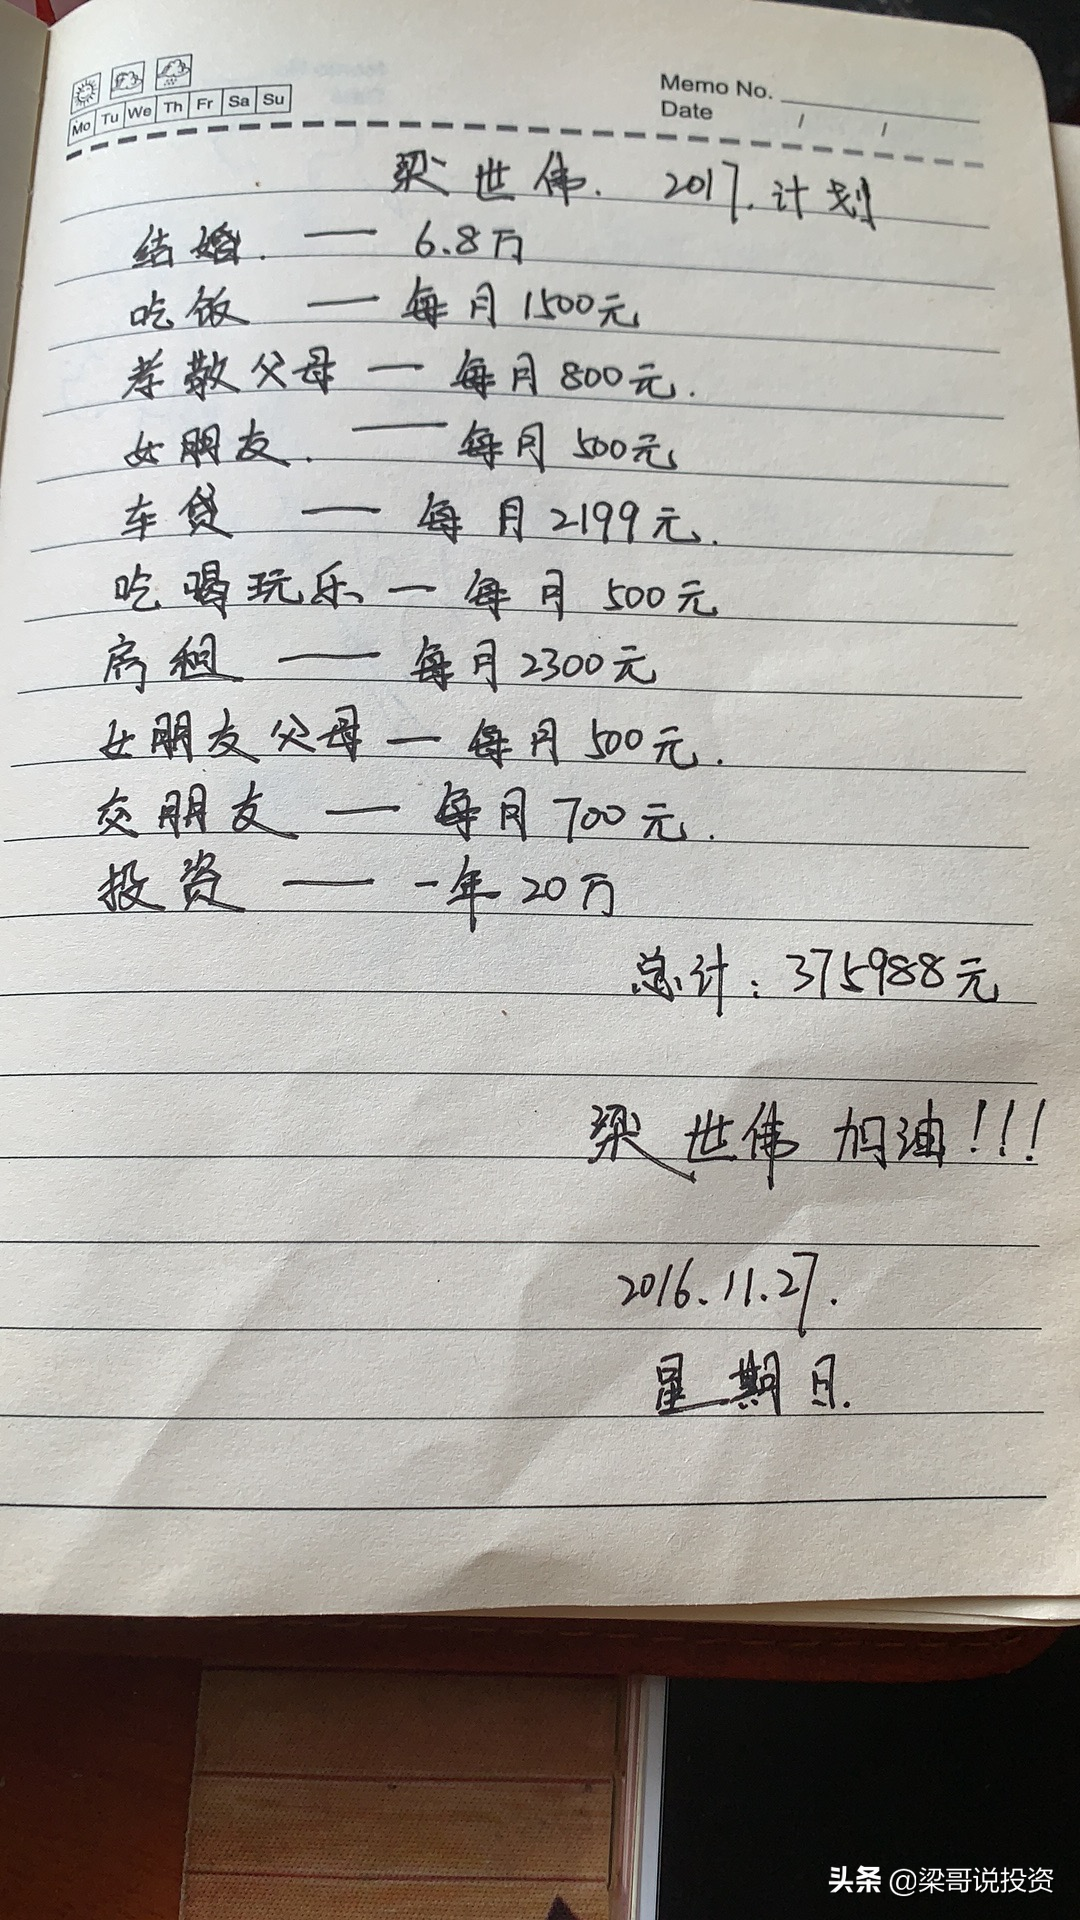 Memo No.
Mo Tu We Th Fr Sa Su
Date / /
梁世伟. 2017.计划
结婚. — 6.8万
吃饭 — 每月1500元
孝敬父母 — 每月800元.
女朋友. — 每月500元
车贷 — 每月2199元.
吃喝玩乐 — 每月500元
房租 — 每月2300元
女朋友父母 — 每月500元.
交朋友 — 每月700元.
投资 — 一年20万
总计: 375988元
梁世伟加油!!!
2016.11.27.
星期日.
头条 @梁哥说投资